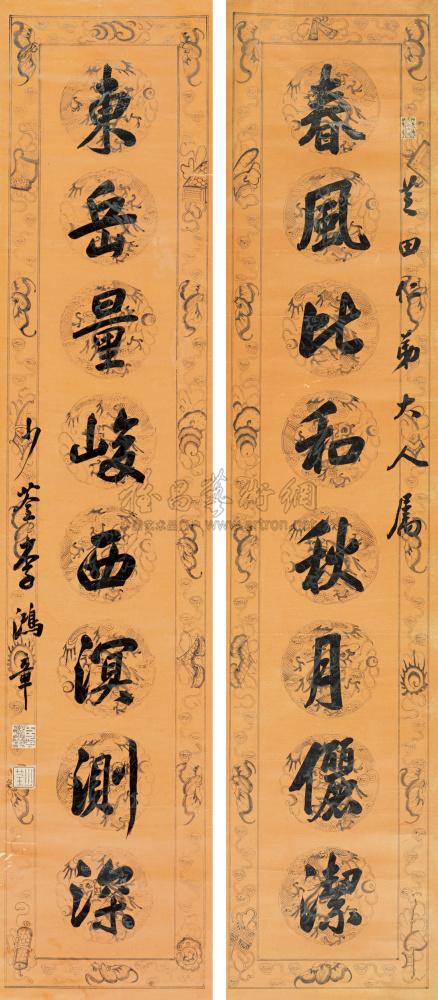 芝田仁弟大人属
春風比和秋月儷潔
東岳量峻西溟測深
少荃李鴻章
雅昌藝術網